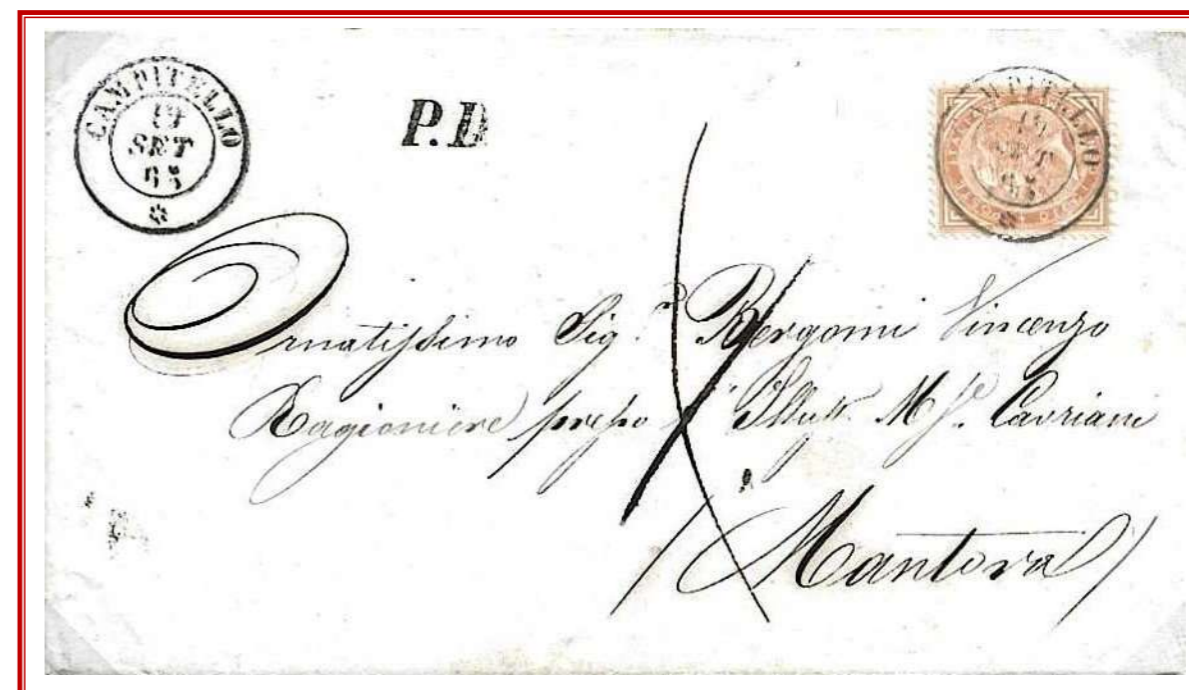 CAMPITELLO
19
SET
65
P.D
CAMPITELLO
19
SET
65
Ornatissimo Sig.r Bergomi Vincenzo
Ragioniere presso Illust. Cavriani
Mantova